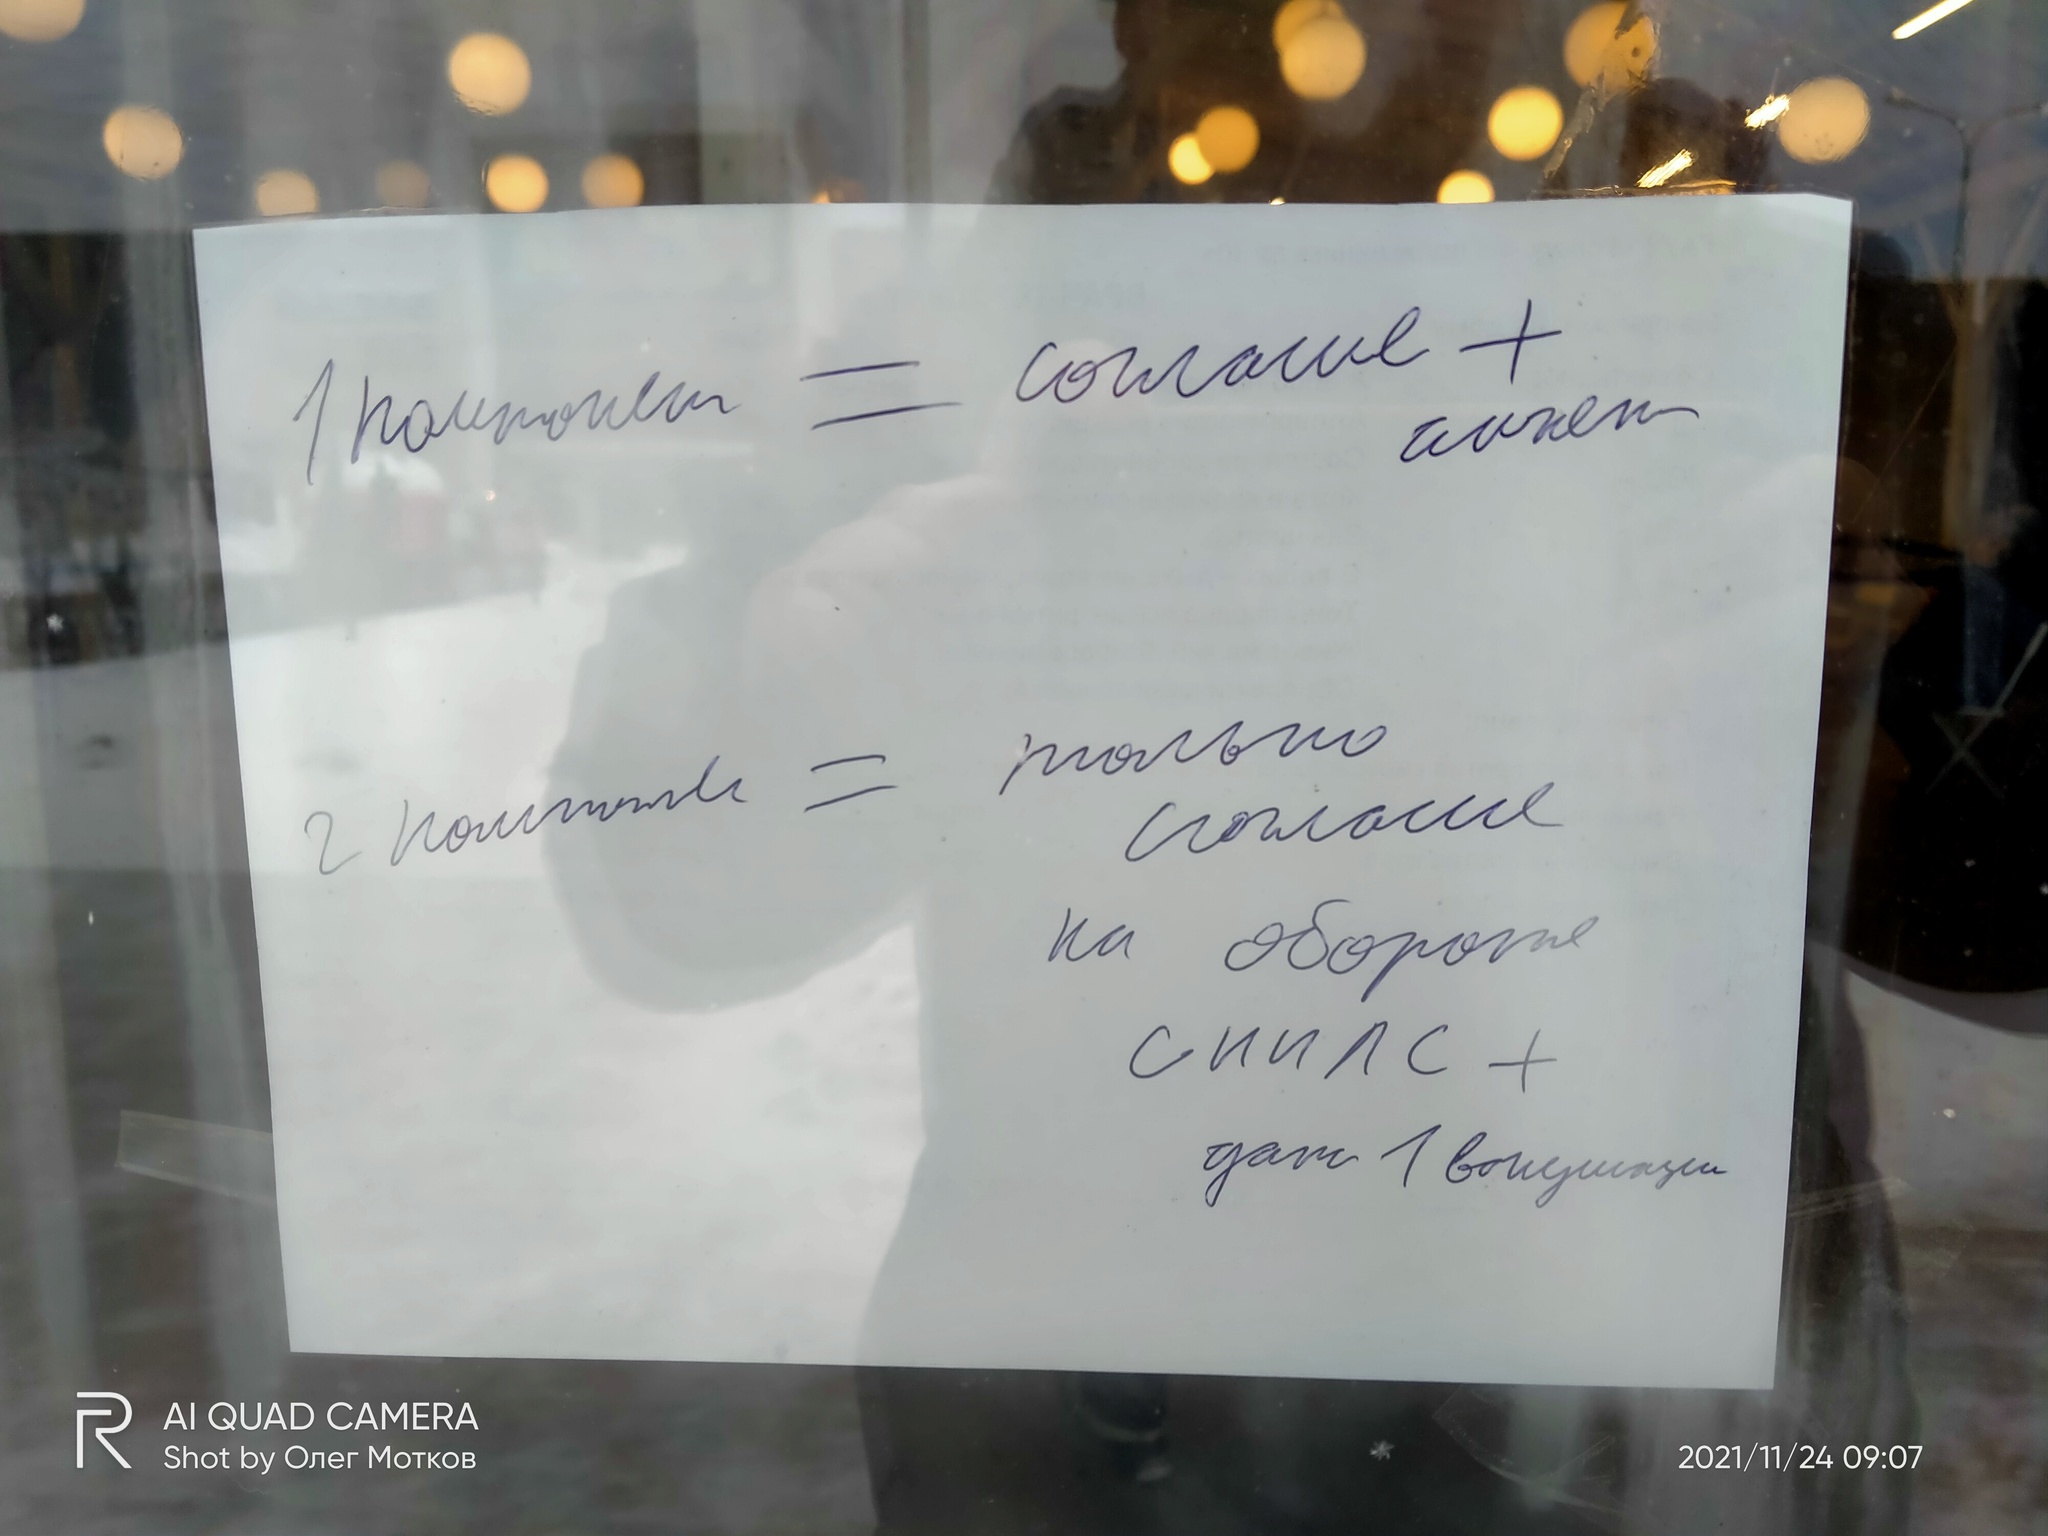 1 компонент = согласие +
анкета
2 компонент = только
согласие
на обороте
СНИЛС +
дата 1 вакцинации
AI QUAD CAMERA
Shot by Олег Мотков
2021/11/24 09:07